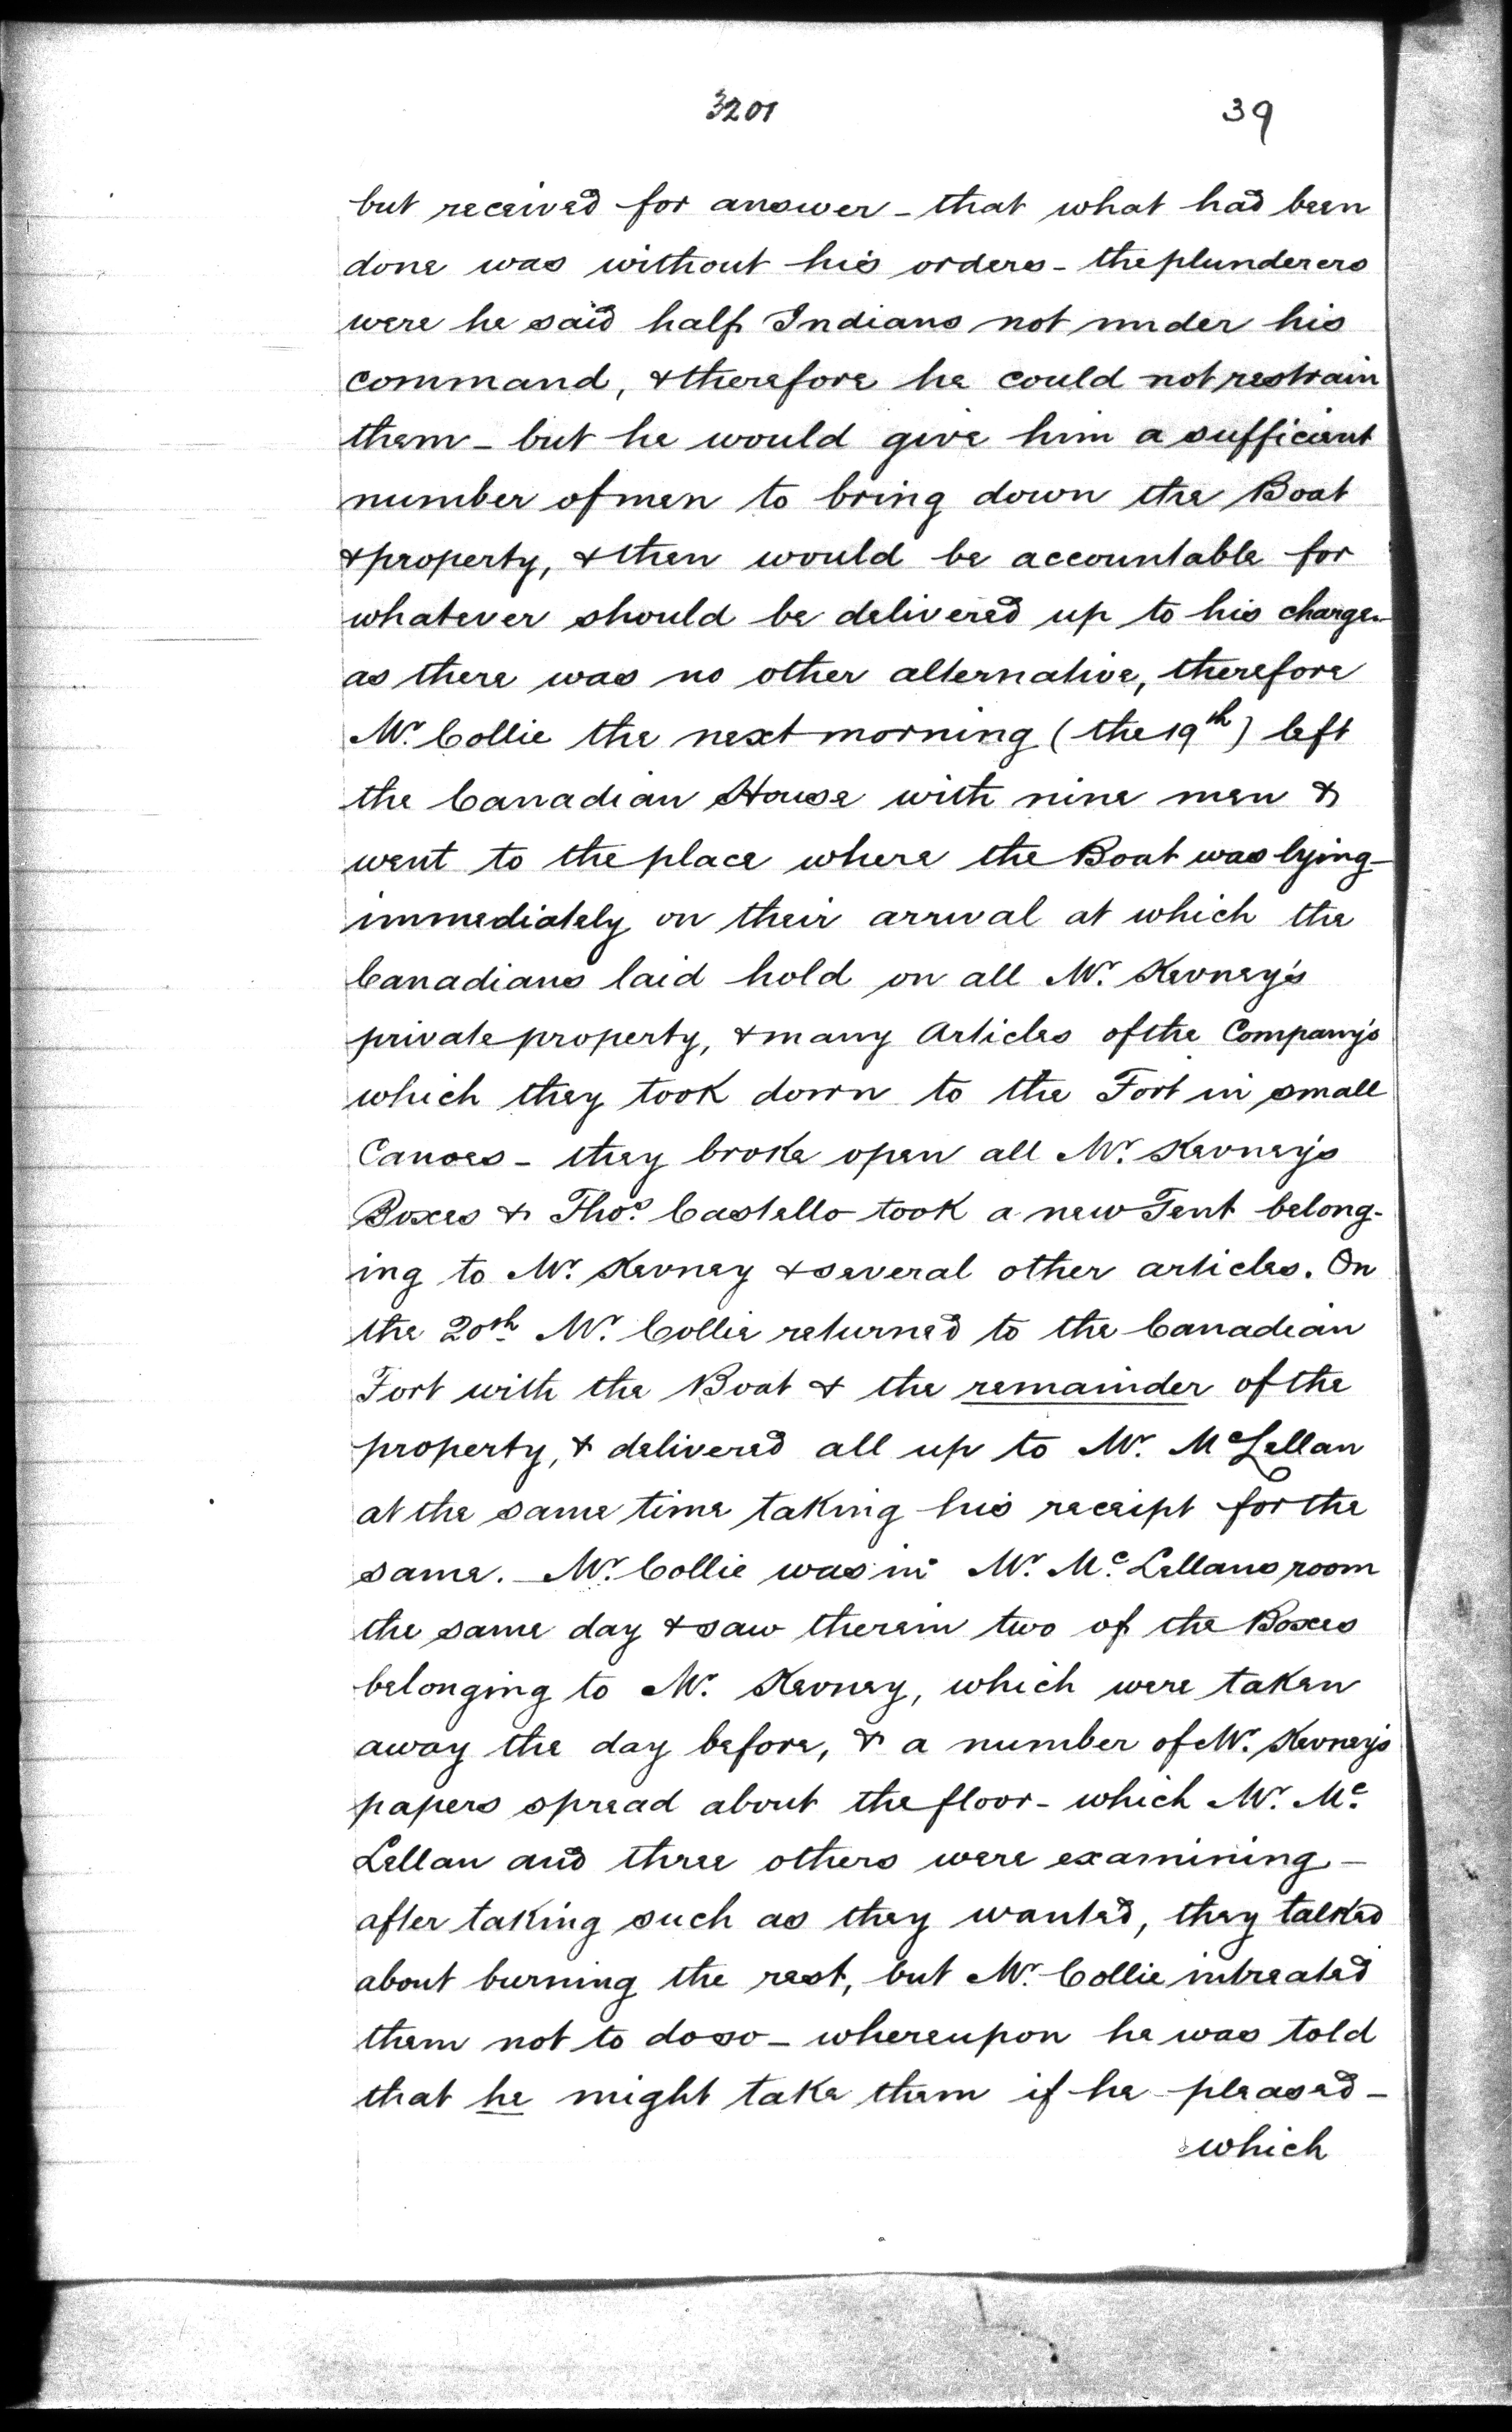 3201 39
but received for answer - that what had been
done was without his orders - the plunderers
were he said half Indians not under his
command, & therefore he could not restrain
them - but he would give him a sufficient
number of men to bring down the Boat
& property, & then would be accountable for
whatever should be delivered up to his charge -
as there was no other alternative, therefore
Mr. Collie the next morning (the 19th) left
the Canadian House with nine men &
went to the place where the Boat was lying -
immediately on their arrival at which the
Canadians laid hold on all Mr. Kevney's
private property, & many Articles of the Company's
which they took down to the Fort in small
Canoes - they broke open all Mr. Kevney's
Boxes & Thos. Castello took a new Tent belong-
ing to Mr. Kevney & several other articles. On
the 20th Mr. Collie returned to the Canadian
Fort with the Boat & the remainder of the
property, & delivered all up to Mr. McLellan
at the same time taking his receipt for the
same. - Mr. Collie was in Mr. Mc. Lellans room
the same day & saw therein two of the Boxes
belonging to Mr. Kevney, which were taken
away the day before, & a number of Mr. Kevney's
papers spread about the floor - which Mr. Mc.
Lellan and three others were examining -
after taking such as they wanted, they talked
about burning the rest, but Mr. Collie intreated
them not to do so - whereupon he was told
that he might take them if he pleased -
which